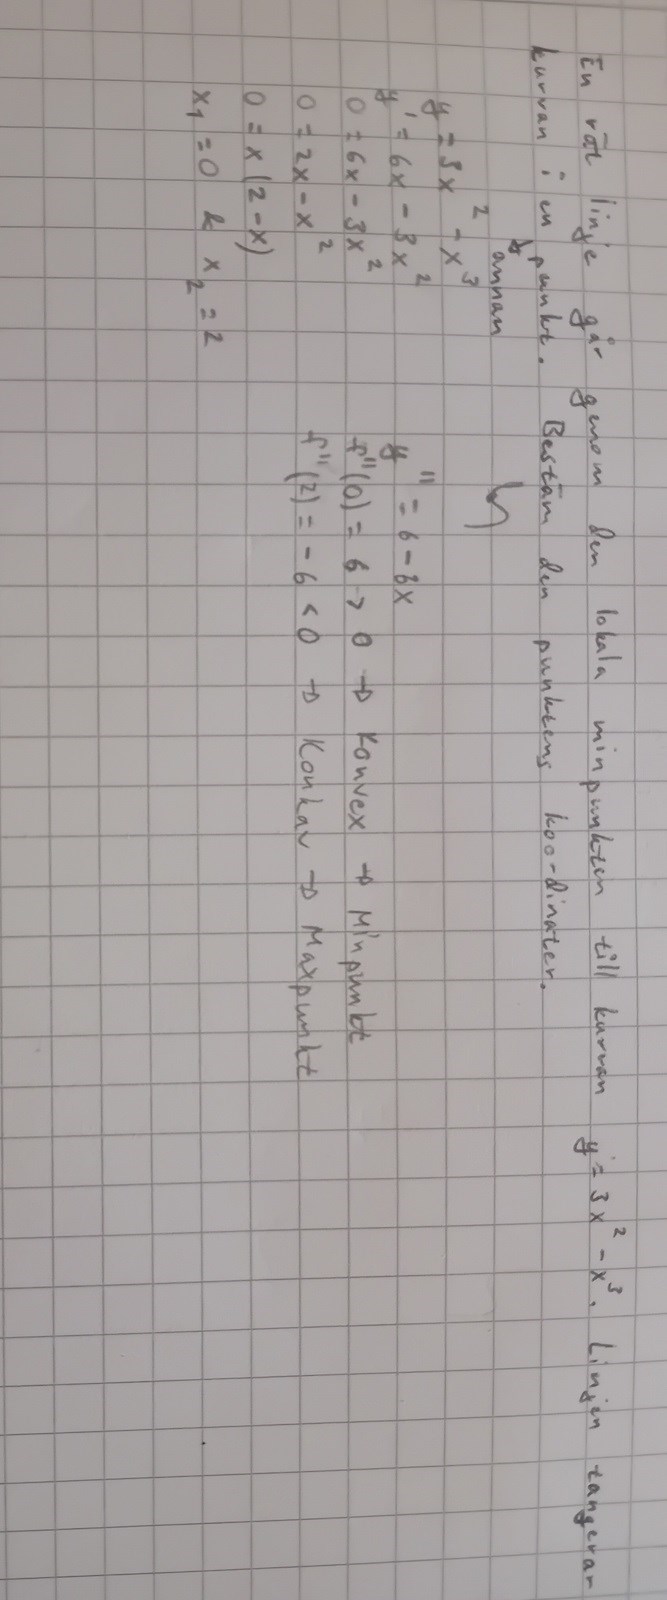 En rät linje går genom den lokala minpunkten till kurvan y = 3x² - x³. Linjen tangerar
kurvan i en punkt. Bestäm den punktens koordinater.
annan
y = 3x² - x³
y' = 6x - 3x²
0 = 6x - 3x²
0 = 2x - x²
0 = x(2-x)
x₁ = 0 & x₂ = 2
y'' = 6 - 6x
f''(0) = 6 > 0 → Konvex → Minpunkt
f''(2) = -6 < 0 → Konkav → Maxpunkt